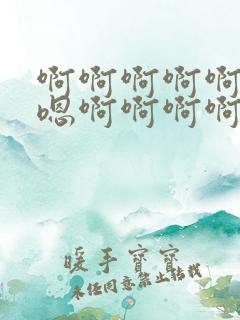 啊啊啊啊啊
嗯啊啊啊啊
暖手宝宝
未经同意禁止转载